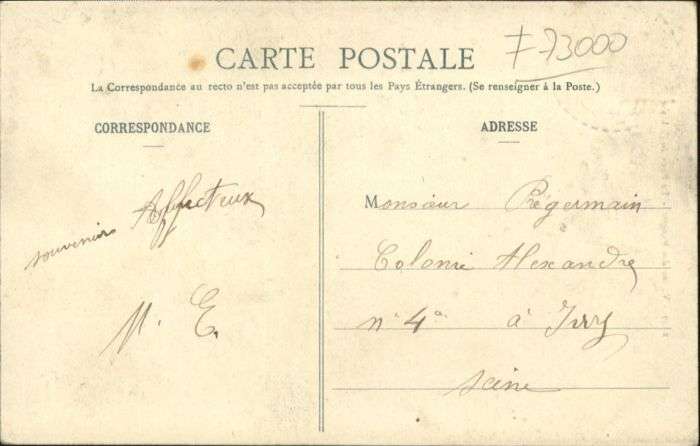 F 73000
CARTE POSTALE
La Correspondance au recto n'est pas acceptée par tous les Pays Étrangers. (Se renseigner à la Poste.)
CORRESPONDANCE
souvenirs Affecteux
M. E.
ADRESSE
Monsieur Prégermain
à
Colonie Alexandre
n° 4 à Ivry
Seine